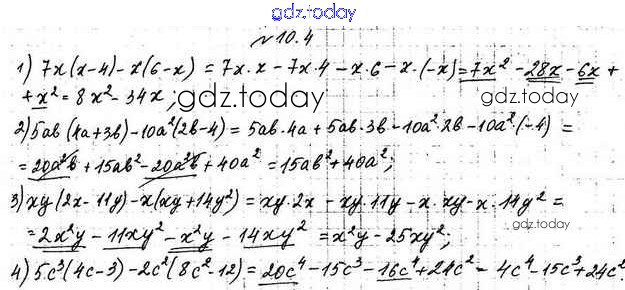 gdz.today
№10.4
1) 7x(x-4)-x(6-x) = 7x·x-7x·4-x·6-x·(-x)=7x²-28x-6x+
+x²=8x²-34x; gdz.today
gdz.today
2) 5ab(4a+3b)-10a²(2b-4) = 5ab·4a+5ab·3b-10a²·2b-10a²·(-4) =
= 20a²b+15ab²-20a²b+40a² = 15ab²+40a²;
3) xy(2x-11y)-x(xy+14y²) = xy·2x-xy·11y-x·xy-x·14y² =
gdz.today
= 2x²y-11xy²-x²y-14xy² = x²y-25xy²;
4) 5c³(4c-3)-2c²(8c²-12) = 20c⁴-15c³-16c⁴+24c² = 4c⁴-15c³+24c²
gdz.today